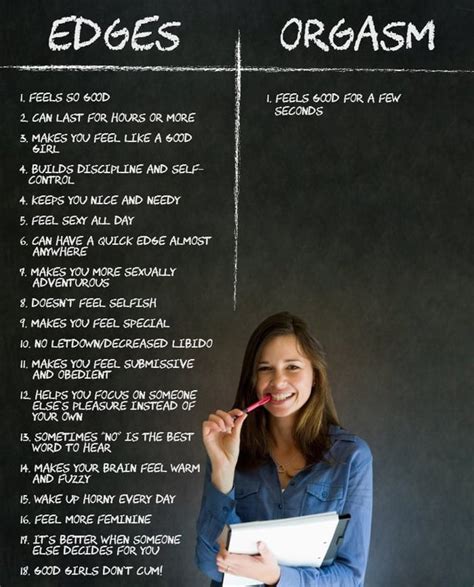 EDGES
ORGASM
1. FEELS SO GOOD
2. CAN LAST FOR HOURS OR MORE
3. MAKES YOU FEEL LIKE A GOOD
GIRL
4. BUILDS DISCIPLINE AND SELF-
CONTROL
4. KEEPS YOU NICE AND NEEDY
5. FEEL SEXY ALL DAY
6. CAN HAVE A QUICK EDGE ALMOST
ANYWHERE
7. MAKES YOU MORE SEXUALLY
ADVENTUROUS
8. DOESN'T FEEL SELFISH
9. MAKES YOU FEEL SPECIAL
10. NO LETDOWN/DECREASED LIBIDO
11. MAKES YOU FEEL SUBMISSIVE
AND OBEDIENT
12. HELPS YOU FOCUS ON SOMEONE
ELSE'S PLEASURE INSTEAD OF
YOUR OWN
13. SOMETIMES "NO" IS THE BEST
WORD TO HEAR
14. MAKES YOUR BRAIN FEEL WARM
AND FUZZY
15. WAKE UP HORNY EVERY DAY
16. FEEL MORE FEMININE
17. IT'S BETTER WHEN SOMEONE
ELSE DECIDES FOR YOU
18. GOOD GIRLS DON'T CUM!
1. FEELS GOOD FOR A FEW
SECONDS